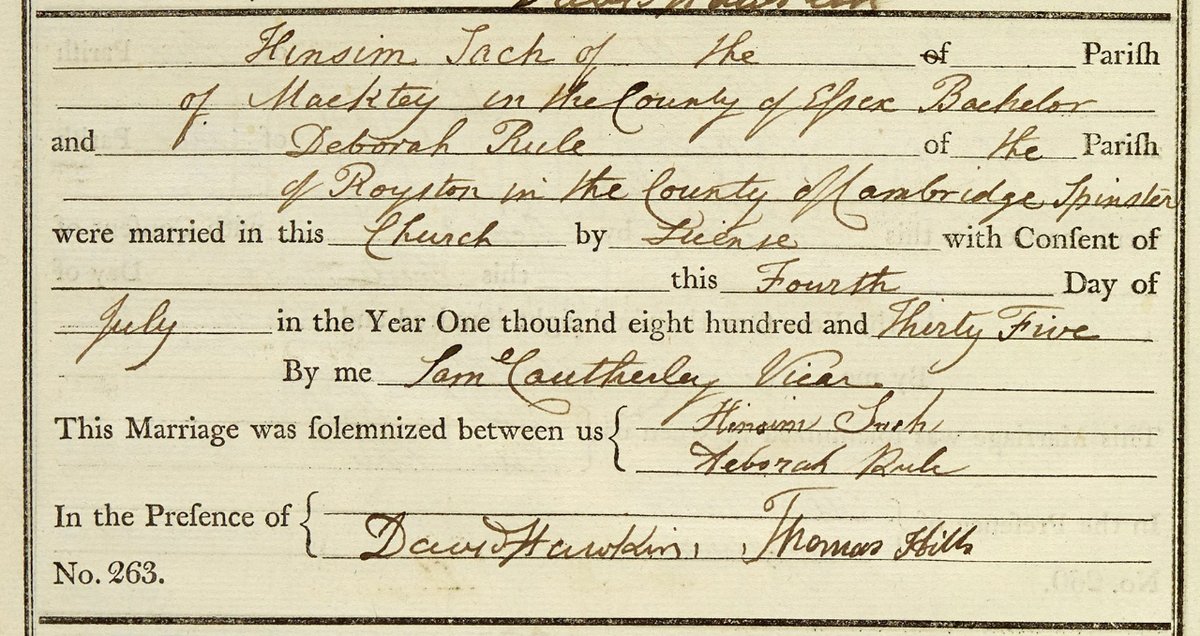 Hinsim Sach of the of Pariſh
of Macktey in the County of Eſsex Bachelor
and Deborah Rule of the Pariſh
of Royston in the County of Cambridge Spinster
were married in this Church by License with Conſent of
this Fourth Day of
July in the Year One thouſand eight hundred and Thirty Five
By me Samˡ Cautherley Vicar.
This Marriage was ſolemnized between us { Hinsim Sach
Deborah Rule
In the Preſence of { David Hawkins, Thomas Hills
No. 263.